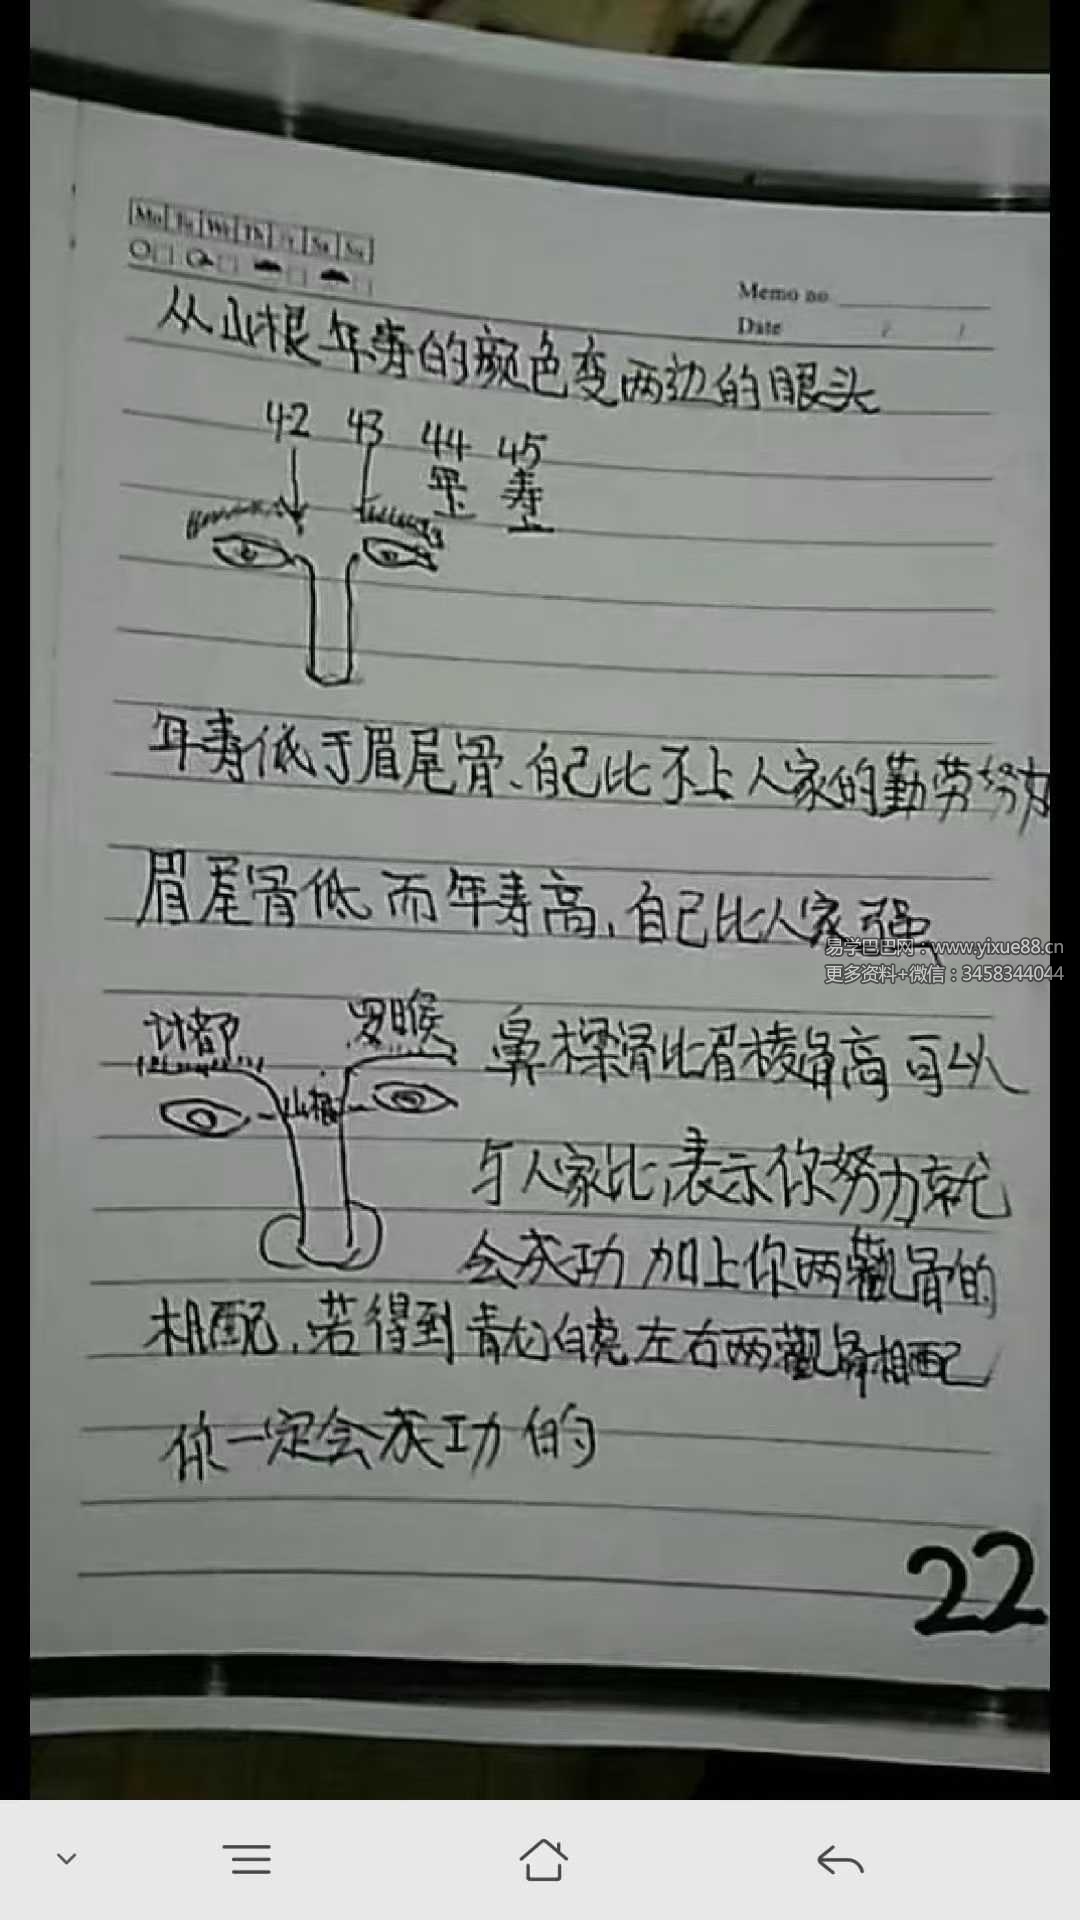 Mo Tu We Th Fr Sa Su
Memo no
Date / /
从山根年寿的颜色变两边的眼头
42 43 44 45
年上 寿上
年寿低于眉尾骨、自己比不上人家的勤劳努力
眉尾骨低而年寿高,自己比人家强
易学巴巴网:www.yixue88.cn
更多资料+微信:3458344044
计都 罗睺
山根
鼻樑骨比眉棱骨高可以
与人家比,表示你努力就
会成功 加上你两颧骨的
相配,若得到青龙白虎左右两颧骨相配
你一定会成功的
22